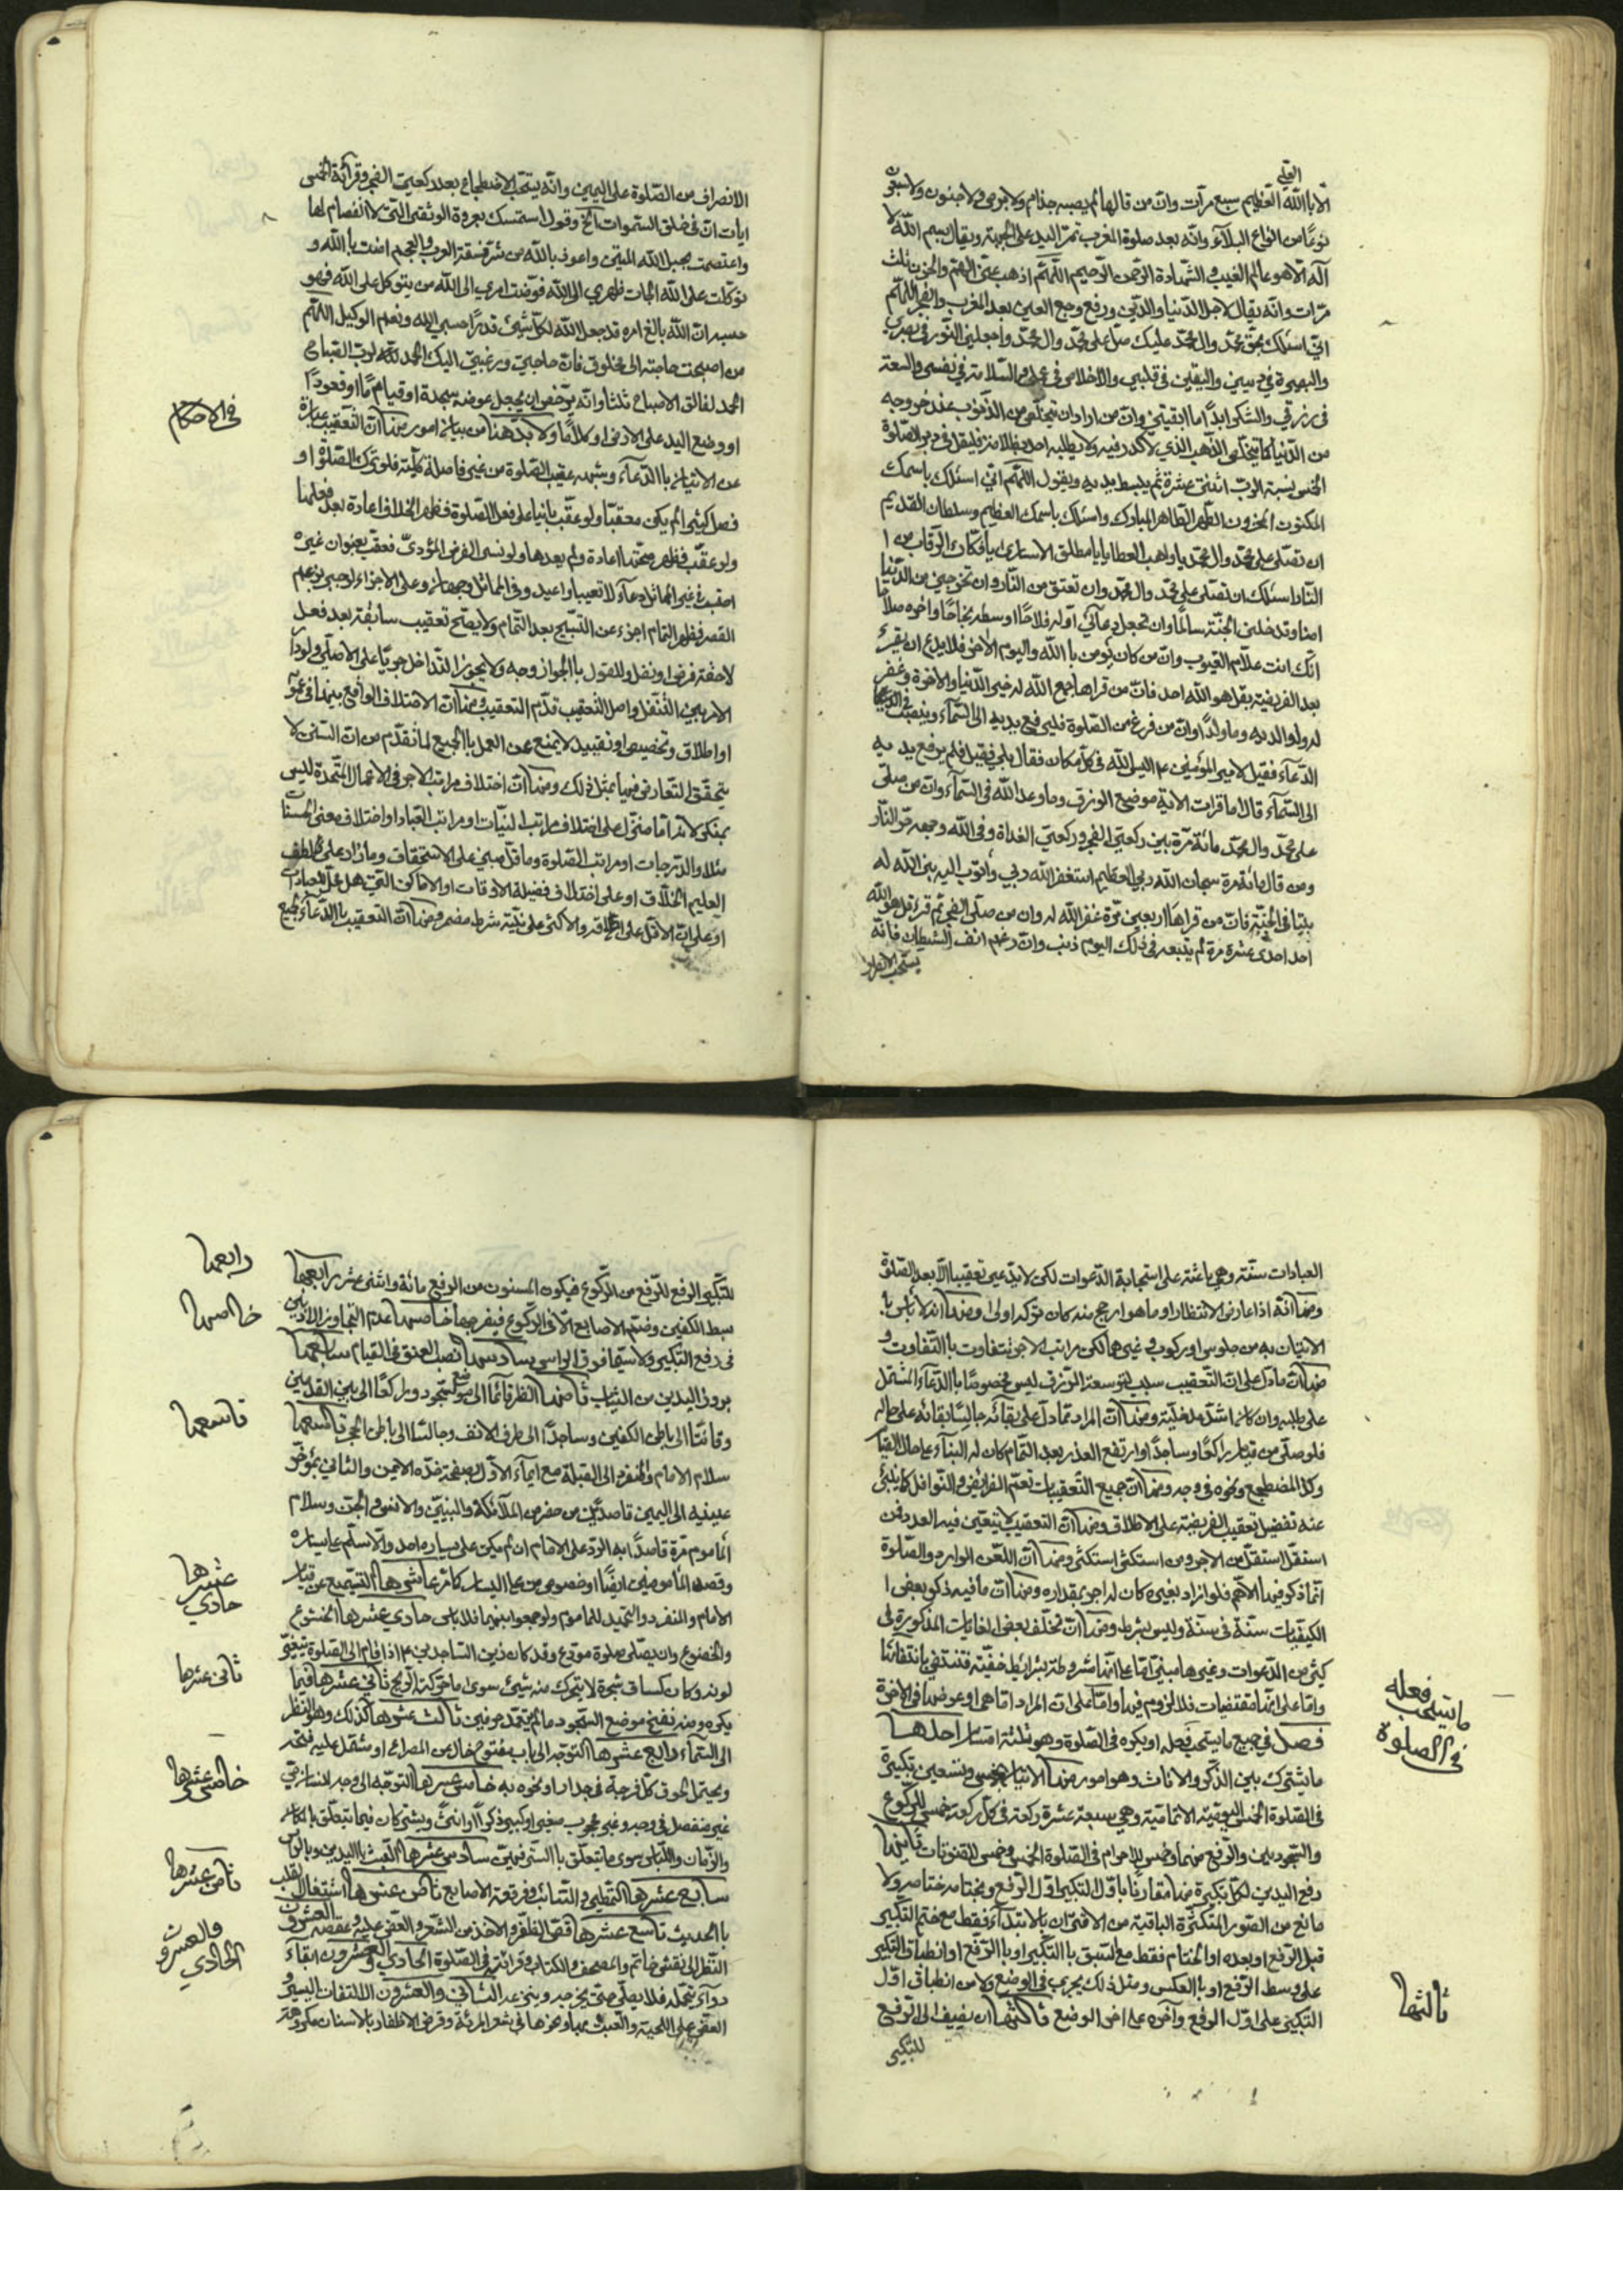 العلي
الا بالله العظيم سبع مرات وان من قالها لم يصبه جذام ولا برص ولا جنون ولا سبعون
نوعا من انواع البلاء وانه بعد صلوة المغرب تمر اليد على الجبهة ويقال بسم الله لا
اله الا هو عالم الغيب والشهادة الرحمن الرحيم اللهم اذهب عني الهم والحزن ثلث
مرات وانه يقال لاجل الدنيا والدين ورفع وجع العين بعد المغرب والفجر اللهم
اني اسئلك بحق محمد وال محمد عليك صل على محمد وال محمد واجعل النور في بصري
والبصيرة في ديني واليقين في قلبي والاخلاص في عملي والسلامة في نفسي والسعة
في رزقي والشكر ابدا ما ابقيتني وان من اراد ان يتخلص من الذنوب عند خروجه
من الدنيا كما يتخلص الذهب الذي لا كدر فيه ولا يطلبه احد بمظلمة فليقل في دبر الصلوة
الخمس نسبة الرب اثنتي عشرة ثم يبسط يديه ويقول اللهم اني اسئلك باسمك
المكنون المخزون الطهر الطاهر المبارك واسئلك باسمك العظيم وسلطانك القديم
ان تصلي على محمد وال محمد يا واهب العطايا يا مطلق الاسارى يا فكاك الرقاب من
النار اسئلك ان تصلي على محمد وال محمد وان تعتق من النار وان تخرجني من الدنيا
امنا وتدخلني الجنة سالما وان تجعل دعائي اوله فلاحا اوسطه نجاحا واخره صلاحا
انك انت علام الغيوب وان من كان يؤمن بالله واليوم الاخر فلا يدع ان يقرء
بعد الفريضة بقل هو الله احد فان من قراها جمع الله له خير الدنيا والاخرة وغفر
له ولوالديه وما ولدا وان من فرغ من الصلوة فليرفع يديه الى السماء وينصب في الدعاء
الدعاء فقيل لامير المؤمنين ع اليس الله في كل مكان فقال بلى فقيل فلم يرفع يديه
الى السماء قال اما قرات الاية موضع الرزق وما وعد الله في السماء وان من صلى
على محمد وال محمد مائة مرة بين ركعتي الفجر وركعتي الغداة وقى الله وجهه حر النار
ومن قال مائة مرة سبحان الله ربي العظيم استغفر الله ربي واتوب اليه بنى الله له
بيتا في الجنة فان من قراها اربعين مرة غفر الله له وان من صلى الفجر ثم قرء قل هو الله
احد احدى عشرة مرة لم يتبعه في ذلك اليوم ذنب وان رغم انف الشيطان فانه
يستحب الانصراف
الانصراف من الصلوة على اليمين وانه يستحب الاضطجاع بعد ركعتي الفجر وقرائة الخمس
ايات ان في خلق السموات الخ وقول استمسك بعروة الوثقى التي لا انفصام لها
واعتصمت بحبل الله المتين واعوذ بالله من شر فسقة العرب والعجم امنت بالله و
توكلت على الله الجات ظهري الى الله فوضت امري الى الله من يتوكل على الله فهو
حسبه ان الله بالغ امره قد جعل الله لكل شيئ قدرا حسبي الله ونعم الوكيل اللهم
من اصبحت حاجته الى مخلوق فان حاجتي ورغبتي اليك الحمد لله لرب الصباح
الحمد لفالق الاصباح ثلثا وانه رخص ان يجعل عوضه سجدة او قيام ما او قعودا
في الاحكام
او وضع اليد على الارض او كلاما ولا بد هنا من بيان امور منها ان التعقيب عبارة
عن الاتيان بالدعاء وشبهه عقيب الصلوة من غير فاصلة كلية فلو ترك الصلوة او
فصل كثيرا لم يكن معقبا ولو عقب بانيا على فعل الصلوة فظهر الخلاف اعادة بعد فعلها
القصر فظهر التمام اجزء عن التسبيح بعد التمام ولا يصح تعقيب سابقة بعد فعل
لاحقة فرض او نفل وللقول بالجواز وجه ولا يجوز التداخل جريا على الاصل ولو دار
الامر بين التنفل واصل التعقيب قدم التعقيب ومنها ان الاختلاف الواقع بينها في نحو
او اطلاق وتخصيص او تقييد لا يمنع عن العمل بالجميع لما تقدم من ان السنن لا
يتحقق التعارض فيها بمثل ذلك ومنها ان اختلاف مراتب الاجر في الاعمال المتحدة ليس
بمنكر لانه اما منزل على اختلاف مراتب النيات او مراتب العباد او اختلاف معنى الحسنات
مثلا والدرجات او مراتب الصلوة وما قل مبني على الاستحقاق وما زاد على لطف
العليم الخلاق او على اختلاف فضيلة الاوقات او الاماكن التي هي محل العبادات
او على ان الاقل على والاكثر على نية شرط مضمر ومنها ان التعقيب بالدعاء لجميع
العبادات سنة وهي باعثة على استجابة الدعوات لكن لا يدعى تعقيبا الا بعد الصلوة
ومنها انه اذا عارض الانتظار او ما هو ارجح منه كان تركه اولى ومنها انه لا باس با
الاتيان به من جلوس او ركوب وغيرهما لكن مراتب الاجر تتفاوت بالتفاوت و
منها ان ما دل على ان التعقيب سبب لتوسعة الرزق ليس مخصوصا بالدعاء المشتمل
على طلبه وان كان اشد مدخلية ومنها ان المراد مما دل على بقائه جالسا بقائه على حاله
فلو صلى من قيام راكعا وساجدا وارتفع العذر بعد التمام كان له البناء على حال القيام
وكذا المضطجع ونحوه في وجه ومنها ان جميع التعقيبات تعم الفرائض والنوافل كما ينبئ
عنه تفضيل تعقيب الفريضة على الاطلاق ومنها ان التعقيب لا يتعين فيه العدد فمن
استقل استقل من الاجر ومن استكثر استكثر ومنها ان اللعن الوارد والصلوة
انما ذكر فيها الاهم فلو زاد بغيره كان له اجر بمقداره ومنها ان ما فيه ذكر بعض ا
الكيفيات سنة في سنة وليس بشرط ومنها ان تخلف بعض الغايات المذكورة في
كثير من الدعوات وغيرها مبني اما على انها مشروطة بشرائط خفية فتنتفي بانتفائها
واما على انها مقتضيات فلا لزوم فيها واما على ان المراد اما هي او عوضها في الاخرة
ما يستحب فعله
في الصلوة
فصل في جميع ما يستحب فعله او يكره في الصلوة وهو ثلثة اقسام احدها
ما تشترك بين الذكور والاناث وهو امور منها الاتيان بخمس وتسعين تكبيرة
في الصلوة الخمس اليومية الاتمامية وهي سبعة عشرة ركعة في كل ركعة خمس للركوع
والسجودين والرفع منهما وخمس للاحرام في الصلوة الخمس وخمس للقنوتات ثانيها
رفع اليدين لكل تكبيرة منها مقارنا باول التكبير اول الرفع وبختامه ختامه ولا
مانع من الصور المتكثرة الباقية من الاقتران بالابتداء فقط مع ختم التكبير
قبل الرفع او بعده او الختام فقط مع السبق بالتكبير او بالرفع او انطباق التكبير
على وسط الرفع او بالعكس ومثل ذلك يجري في الوضع ولا من انطباق اول
ثالثها
التكبير على اول الرفع واخره على اخر الوضع ثالثها ان يضيف الى الرفع
للتكبير
رابعها
للتكبير الرفع للرفع من الركوع فيكون المسنون من الرفع مائة واثنى عشر رابعها
خامسها
بسط الكفين وضم الاصابع الا في الركوع فيفرجها خامسها عدم التجاوز الاذنين
في رفع التكبير ولا سيما فوق الراس سادسها نصب العنق في القيام سابعها
بروز اليدين من الثياب ثامنها النظر قائما الى موضع السجود وراكعا الى بين القدمين
تاسعها
وقانتا الى باطن الكفين وساجدا الى طرف الانف وجالسا الى باطن الحجر تاسعها
سلام الامام والمنفرد الى القبلة مع ايماء الاول بصفحة خده الايمن والثاني بمؤخر
عينيه الى اليمين قاصدين من حضر من الملائكة والنبيين والانس والجن وسلام
الماموم مرة قاصدا به الرد على الامام ان لم يكن على يساره احد والا سلم على يساره
عشرها
وقصد المامومين ايضا او خصوص من على اليسار كما مر عاشرها التسميع من قيام
حادي
الامام والمنفرد والتحميد للماموم ولو جمعوا بينهما فلا باس حادي عشرها الخشوع
والخضوع وان يصلي صلوة مودع وقد كان زين الساجدين ع اذا قام الى الصلوة تغير
ثاني عشرها
لونه وكان كساق شجرة لا يتحرك منه شيئ سوى ما حركته الريح ثاني عشرها فيما
يكره ومنه نفخ موضع السجود ما لم يتعمد حرفين ثالث عشرها كذلك وهو النظر
الى السماء رابع عشرها التوجه الى باب مفتوح خال من المصراع او مشتمل عليه منفتح
خامس عشرها
ويحتمل لحوق كل فرجة في جدار او نحوه به خامس عشرها التوجه الى وجه انسان حي
غير منفصل في وجه وغير محجوب صغير او كبير ذكرا او انثى ويشترك فيما يتعلق بالمكان
والزمان واللباس سوى ما يتعلق بالستر فيهن سادس عشرها العبث باليدين وبالراس
ثامن عشرها
سابع عشرها التمطي والتثائب وفرقعة الاصابع ثامن عشرها اشتغال القلب
بالحديث تاسع عشرها قص الظفر والاخذ من الشعر والعض عليه وعقصه العشرون
والعشرون
الحادي
النظر الى نقش خاتم والمصحف والكتاب وقرائته في الصلوة الحادي والعشرون ابقاء
دواء يتحمله فلا يصلي حتى يخرجه وينزعه الثاني والعشرون الالتفات اليسير و
العض على اللحية والعبث بها ونحوها في شعر المرئة وقرض الاظفار بالاسنان مكروهة